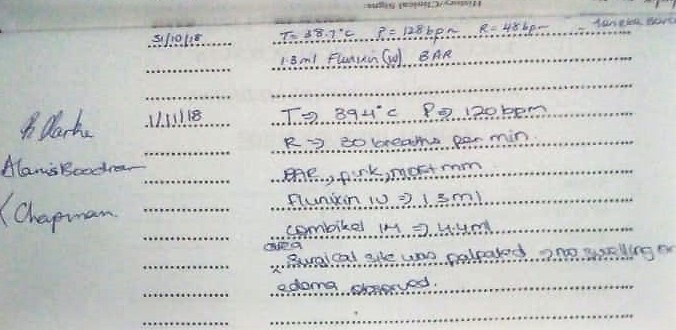 History/Clinical Signs
31/10/18 T= 38.7°c P= 128bpm R= 48bpm
1.3ml Flunixin (IV) BAR
1/11/18 T⇒ 39.4°c P⇒ 120bpm
R ⇒ 30 breaths per min.
BAR, pink, moist mm
Flunixin IV ⇒ 1.3ml
Combikel IM ⇒ 4.4ml
area
x Surgical site was palpated ⇒ no swelling or
edema observed.
Chapman